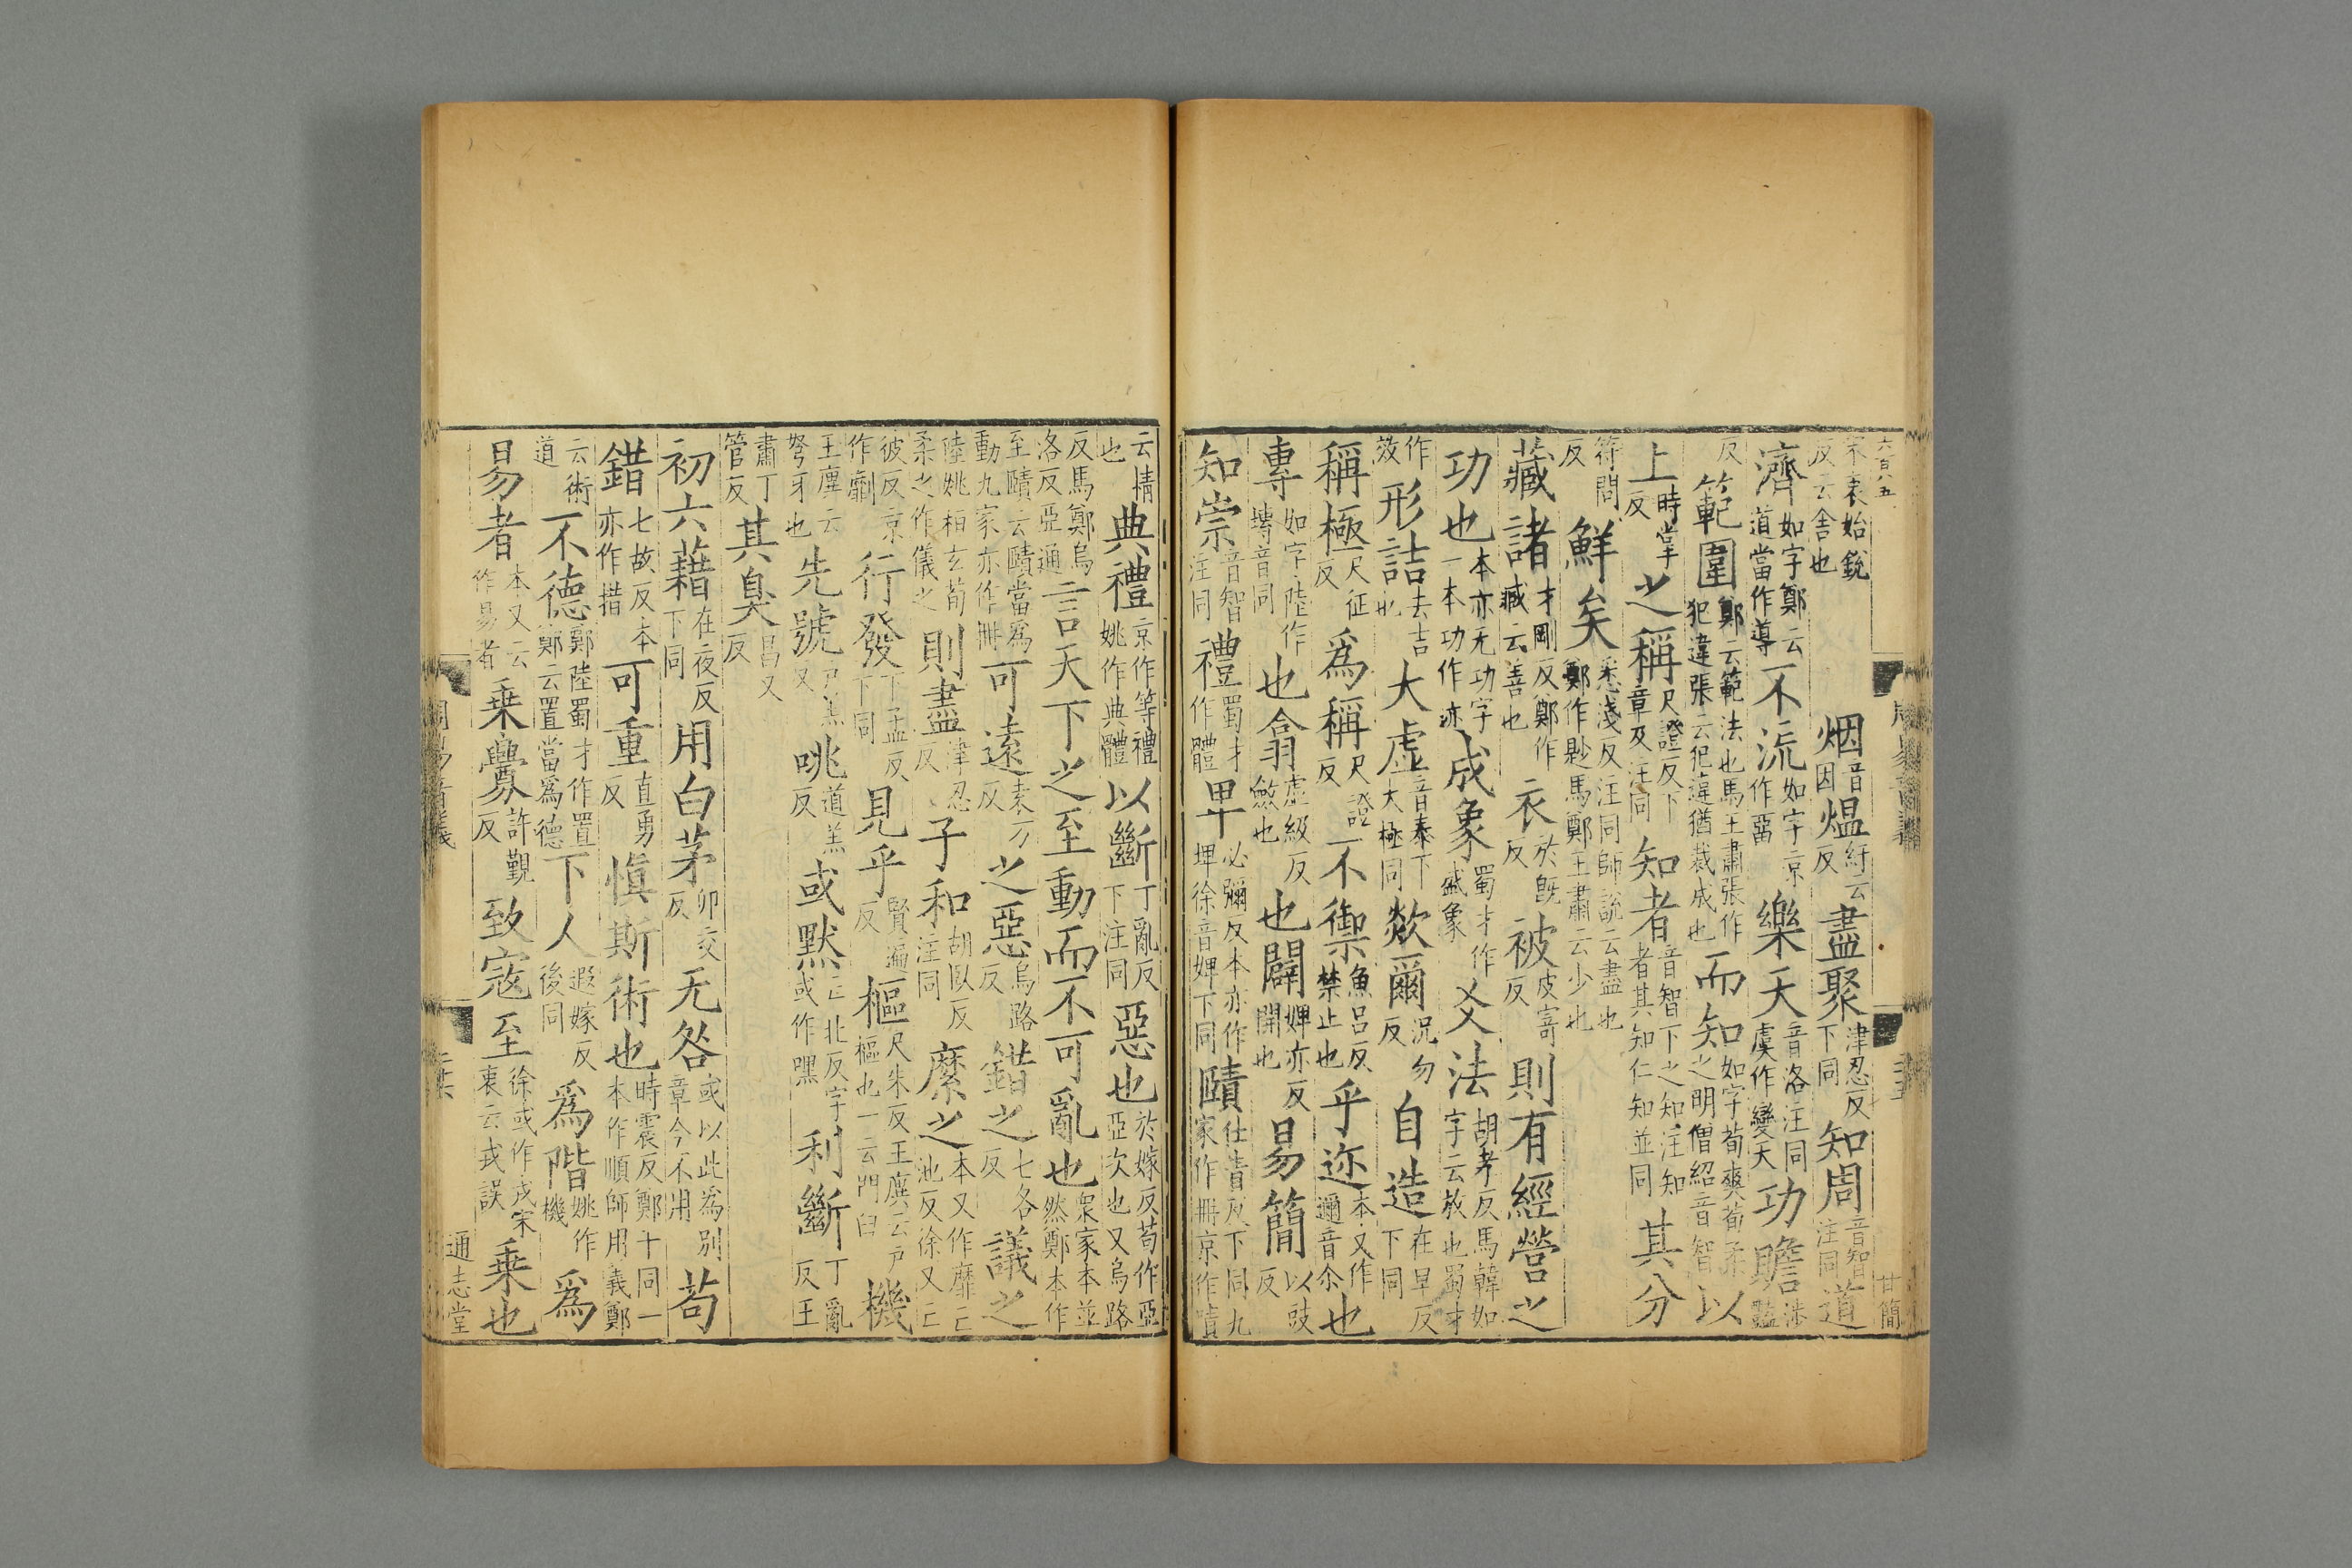 六百八五 周易音義 甘簡
宋衷始銳反云舍也 烟音因 熅紆云反 盡聚津忍反下同 知周音智注同 道
濟如字鄭云道當作導 不流如字京作畱 樂天音洛注同虞作變天 功贍涉豔
反 範圍鄭云範法也馬王肅張作犯違張云犯違猶裁成也 而知如字荀爽荀柔之明僧紹音智 以
上時掌反 之稱尺證反下章及注同 知者音智下之知注知者其知仁知並同 其分
符問反 鮮矣悉淺反注同師說云盡也鄭作尟馬鄭王肅云少也
藏諸才剛反鄭作臧云善也 衣於旣反 被皮寄反 則有經營之
功也本亦无功字一本功作迹 成象蜀才作盛象 爻法胡孝反馬韓如字云放也蜀才
作效 形詰去吉也 大虛音泰下大極同 欻爾況勿反 自造在早反下同
稱極尺征反 爲稱尺證反 不禦魚呂反禁止也 乎迩本又作邇音尒 也
專如字陸作塼音同 也翕虛級反斂也 也闢婢亦反開也 易簡以豉反
知崇音智注同 禮蜀才作體 卑必彌反本亦作埤徐音婢下同 賾仕責反下同九家作冊京作嘖
云情也 典禮京作等禮姚作典體 以斷丁亂反下注同 惡也於嫁反荀作亞亞次也又烏路
反馬鄭烏洛反亞通 言天下之至動而不可亂也衆家本並然鄭本作
至賾云賾當爲動九家亦作冊 可遠袁万反 之惡烏路反 錯之七各反 議之
陸姚桓玄荀柔之作儀之 則盡津忍反 子和胡臥反注同 縻之本又作靡亡池反徐又亡
彼反京作劘 行發下孟反下同 見乎賢遍反 樞尺朱反王廙云户樞也一云門臼 機
王廙云弩牙也 先號户羔又 咷道羔反 或默亡北反字或作嘿 利斷丁亂反王
肅丁管反 其臭昌又反
初六藉在夜反下同 用白茅卯交反 无咎或以此爲別章今不用 苟
錯七故反本亦作措 可重直勇反 愼斯術也時震反鄭干同一本作順師用義鄭
云術道 不德鄭陸蜀才作置鄭云置當爲德 下人遐嫁反後同 爲階姚作機 爲
易者本又云作易者 乗釁許覲反 致寇至徐或作戎宋衷云戎誤 乗也
周易音義 通志堂